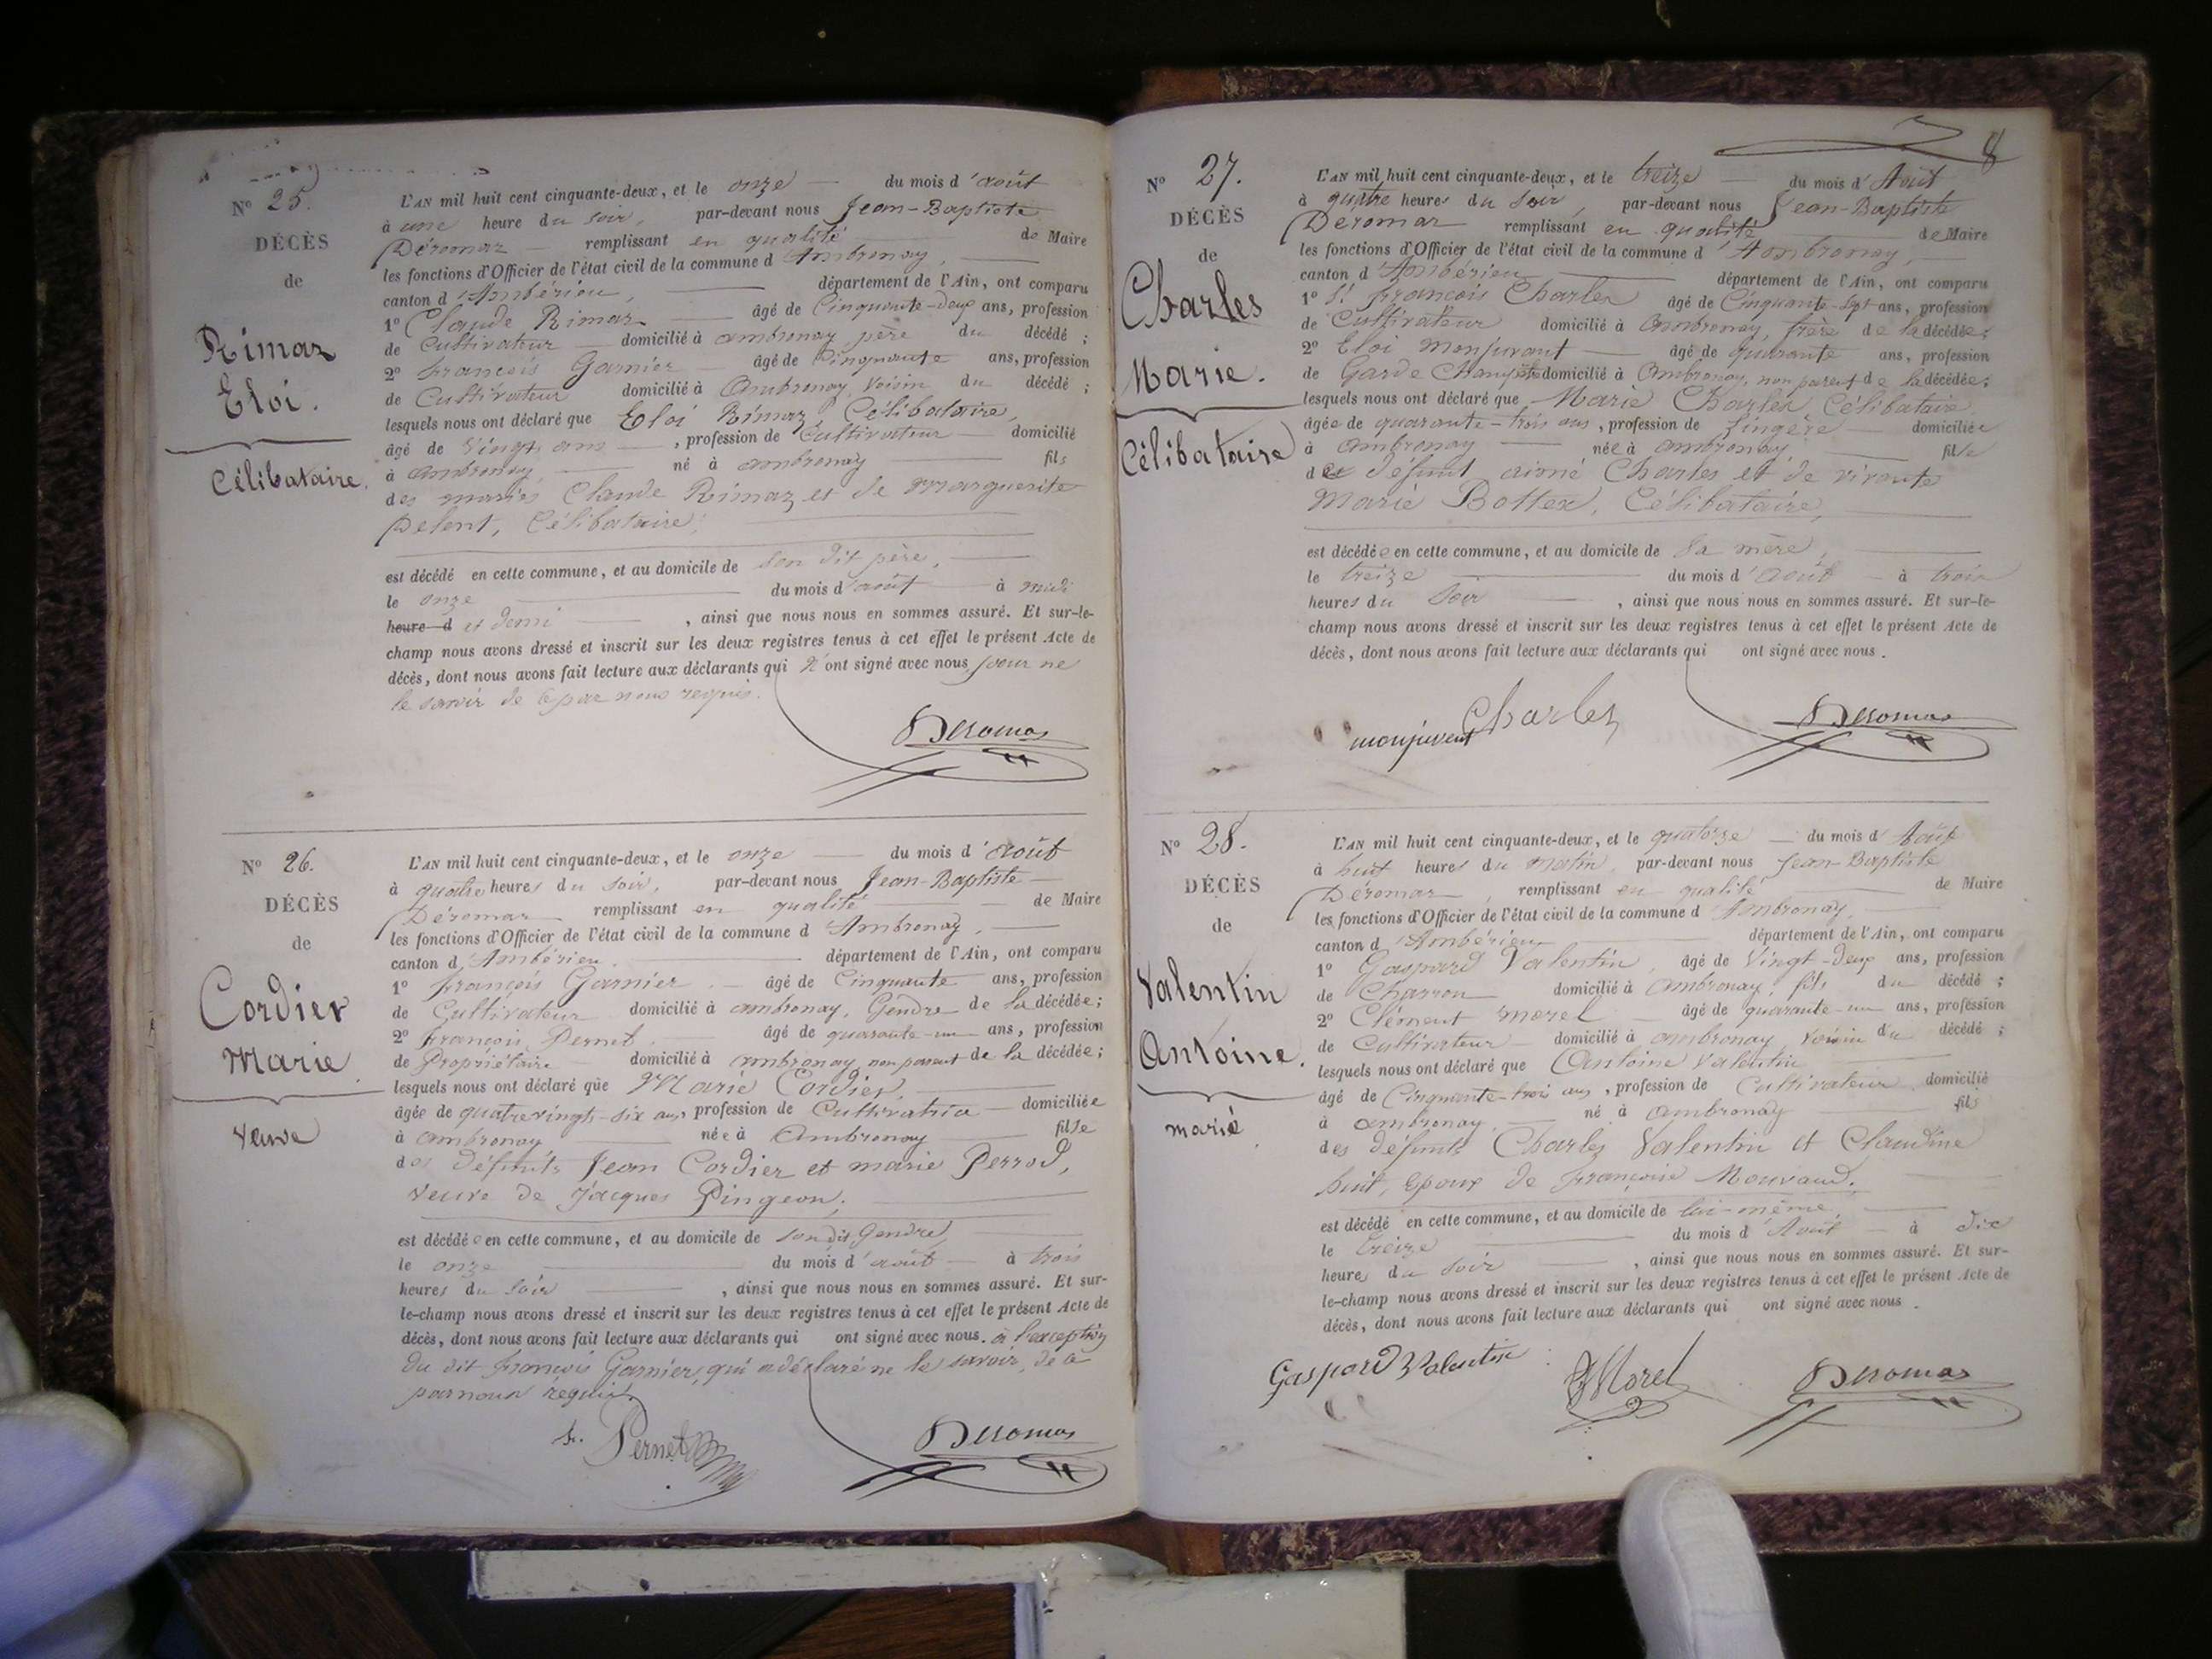 N° 25.
DÉCÈS
de
Rimaz
Eloi.
Célibataire.
L'AN mil huit cent cinquante-deux, et le onze du mois d'août
à une heure du soir, par-devant nous Jean-Baptiste
Déromaz remplissant en qualité de Maire
les fonctions d'Officier de l'état civil de la commune d'Ambronay,
canton d'Ambérieu, département de l'Ain, ont comparu
1° Claude Rimaz âgé de Cinquante-deux ans, profession
de Cultivateur domicilié à ambronay père du décédé ;
2° françois Garnier âgé de Cinquante ans, profession
de Cultivateur domicilié à Ambronay, voisin du décédé ;
lesquels nous ont déclaré que Eloi Rimaz, Célibataire,
âgé de vingt ans, profession de Cultivateur domicilié
à ambronay, né à ambronay fils
des mariés Claude Rimaz et de Marguerite
Pelent, Célibataire;
est décédé en cette commune, et au domicile de son dit père,
le onze du mois d'août à midi
heure d et demi, ainsi que nous nous en sommes assuré. Et sur-le-
champ nous avons dressé et inscrit sur les deux registres tenus à cet effet le présent Acte de
décès, dont nous avons fait lecture aux déclarants qui n'ont signé avec nous pour ne
le savoir de ce par nous requis.
Deromas
N° 26.
DÉCÈS
de
Cordier
Marie.
veuve
L'AN mil huit cent cinquante-deux, et le onze du mois d'août
à quatre heures du soir, par-devant nous Jean-Baptiste
Déromaz remplissant en qualité de Maire
les fonctions d'Officier de l'état civil de la commune d'Ambronay,
canton d'Ambérieu. département de l'Ain, ont comparu
1° françois Garnier. âgé de Cinquante ans, profession
de Cultivateur domicilié à ambronay, Gendre de la décédée;
2° françois Pernet. âgé de quarante-un ans, profession
de Propriétaire domicilié à ambronay non parent de la décédée;
lesquels nous ont déclaré que Marie Cordier,
âgée de quatrevingt-six ans, profession de Cultivatrice domiciliée
à ambronay née à Ambronay fille
des défunts Jean Cordier et marie Perrod,
veuve de Jacques Pingeon;
est décédée en cette commune, et au domicile de son dit Gendre,
le onze du mois d'août à trois
heures du soir, ainsi que nous nous en sommes assuré. Et sur-
le-champ nous avons dressé et inscrit sur les deux registres tenus à cet effet le présent Acte de
décès, dont nous avons fait lecture aux déclarants qui ont signé avec nous. à l'exception
du dit françois Garnier, qui a déclaré ne le savoir, de ce
par nous requis.
fs. Pernet
Deromas
8
N° 27.
DÉCÈS
de
Charles
Marie.
Célibataire
L'AN mil huit cent cinquante-deux, et le treize du mois d'Août
à quatre heures du soir, par-devant nous Jean-Baptiste
Deromaz remplissant en qualité de Maire
les fonctions d'Officier de l'état civil de la commune d'Ambronay,
canton d'Ambérieu département de l'Ain, ont comparu
1° françois Charles âgé de Cinquante-sept ans, profession
de Cultivateur domicilié à Ambronay, frère de la décédée;
2° Eloi Monjuvant âgé de quarante ans, profession
de Garde Champêtre domicilié à Ambronay, non parent de la décédée;
lesquels nous ont déclaré que Marie Charles, Célibataire,
âgée de quarante-trois ans, profession de Lingère domiciliée
à ambronay née à ambronay fille
de défunt aimé Charles et de vivante
Marie Bottex, Célibataire,
est décédée en cette commune, et au domicile de sa mère,
le treize du mois d'août à trois
heures du soir, ainsi que nous nous en sommes assuré. Et sur-le-
champ nous avons dressé et inscrit sur les deux registres tenus à cet effet le présent Acte de
décès, dont nous avons fait lecture aux déclarants qui ont signé avec nous.
monjuvent Charles Deromas
N° 28.
DÉCÈS
de
Valentin
Antoine.
marié
L'AN mil huit cent cinquante-deux, et le quatorze du mois d'Août
à huit heures du matin, par-devant nous Jean-Baptiste
Déromaz, remplissant en qualité de Maire
les fonctions d'Officier de l'état civil de la commune d'Ambronay,
canton d'Ambérieu département de l'Ain, ont comparu
1° Gaspard Valentin, âgé de Vingt-deux ans, profession
de Charron domicilié à Ambronay, fils du décédé ;
2° Clément Morel âgé de quarante-un ans, profession
de Cultivateur domicilié à ambronay, voisin du décédé ;
lesquels nous ont déclaré que Antoine Valentin
âgé de Cinquante-trois ans, profession de Cultivateur domicilié
à ambronay, né à Ambronay fils
des défunts Charles Valentin et Claudine
huit, époux de françoise Mouvaud.
est décédé en cette commune, et au domicile de lui-même,
le treize du mois d'Août à dix
heures du soir, ainsi que nous nous en sommes assuré. Et sur-
le-champ nous avons dressé et inscrit sur les deux registres tenus à cet effet le présent Acte de
décès, dont nous avons fait lecture aux déclarants qui ont signé avec nous.
Gaspard Valentin Morel Deromas